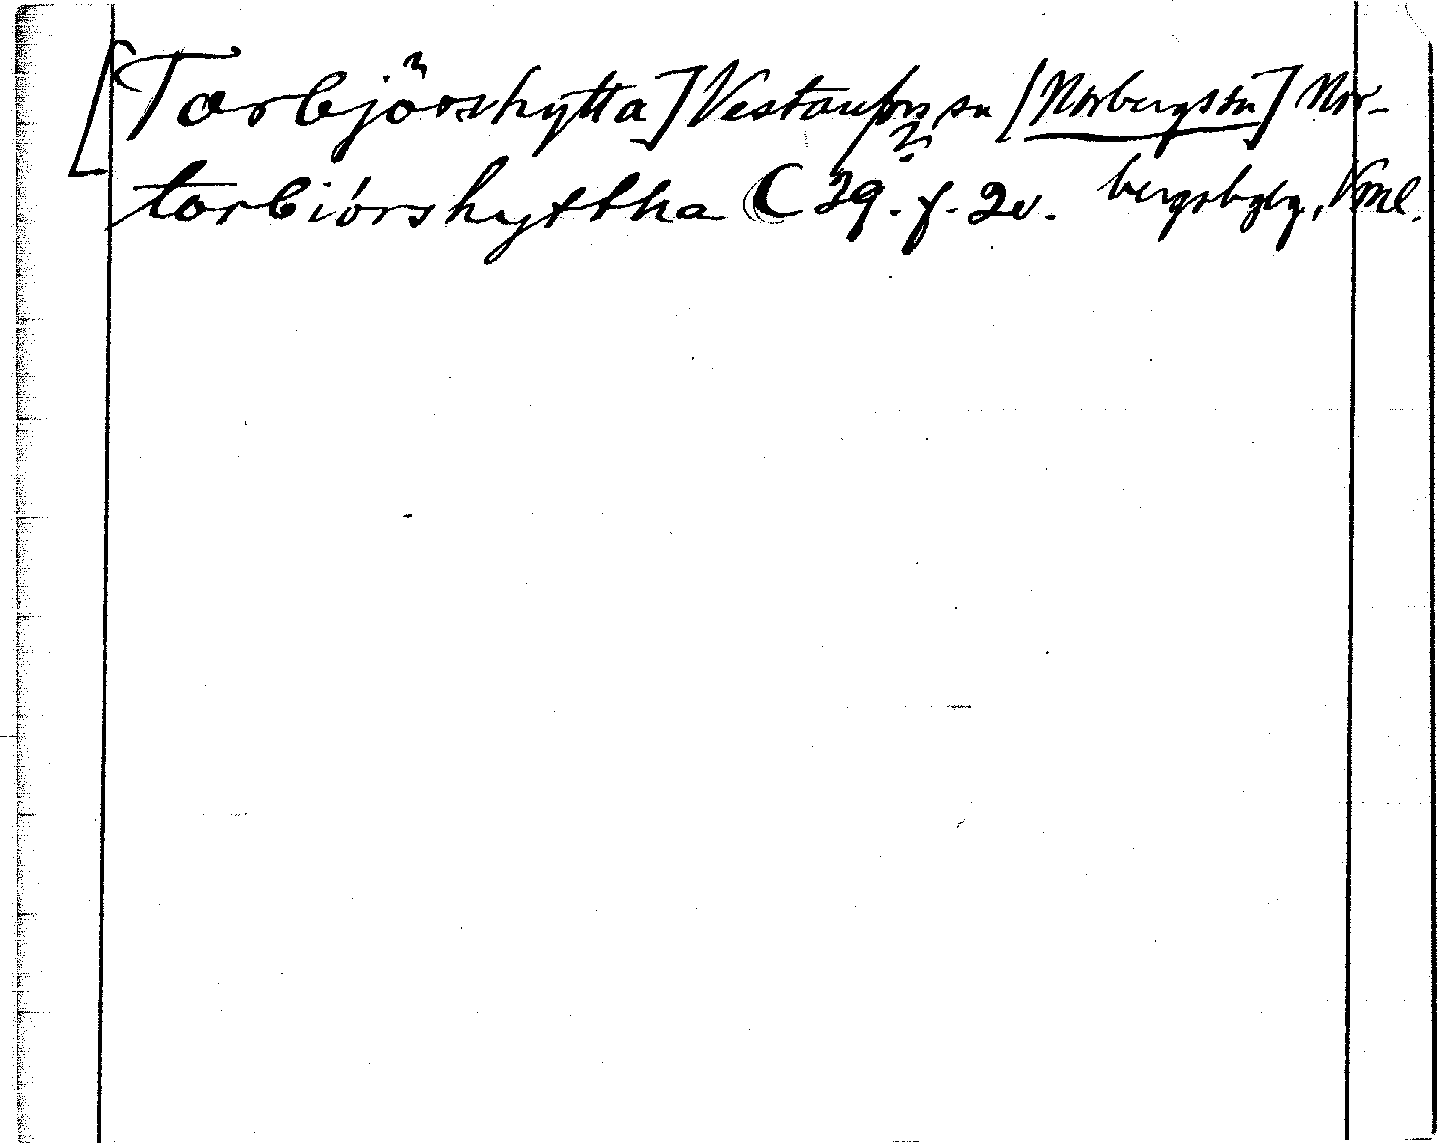 [Torbjörshytta] Vestanfors sn [Norbergs sn] Nor-
torbiórshyttha C 39. f. 2v. bergsbglg, Vml.